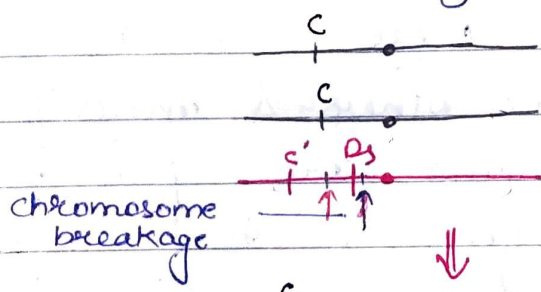 C
C
C' Ds
chromosome
breakage